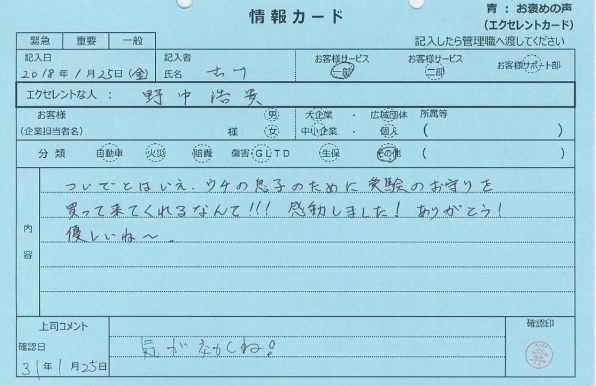 情報カード
青：お褒めの声
(エクセレントカード)
緊急 重要 一般
記入したら管理職へ渡してください
記入日
2018年1月25日(金)
記入者
氏名
お客様サービス
一部
お客様サービス
二部
お客様サポート部
エクセレントな人： 野中浩美
お客様
(企業担当者名)
様
男
女
大企業・広域団体
中小企業・個人
所属等
( )
( )
分類 自動車 火災 賠責 傷害・GLTD 生保 その他 ( )
内容
ついでとはいえ、ウチの息子のために受験のお守りを
買って来てくれるなんて!!! 感動しました! ありがとう!
優しいね〜。
上司コメント
確認日
31年1月25日
気が効くね!
確認印